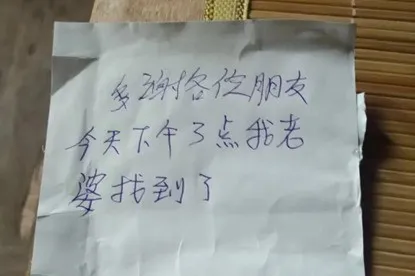 多谢各位朋友
今天下午3点我老
婆找到了